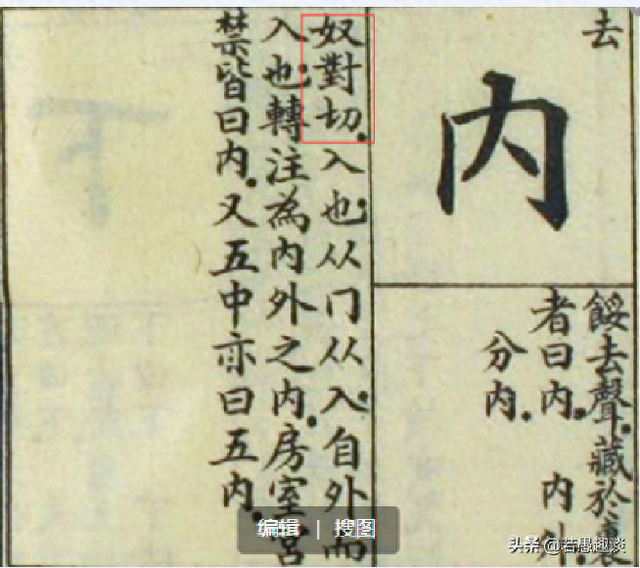 去
内
餒去聲.藏於裏
者曰内.内外.
分内.
奴對切.入也从门从入.自外而
入也.轉注為内外之内.房室宮
禁皆曰内.又五中亦曰五内.
编辑 | 搜图
头条 @若愚趣谈